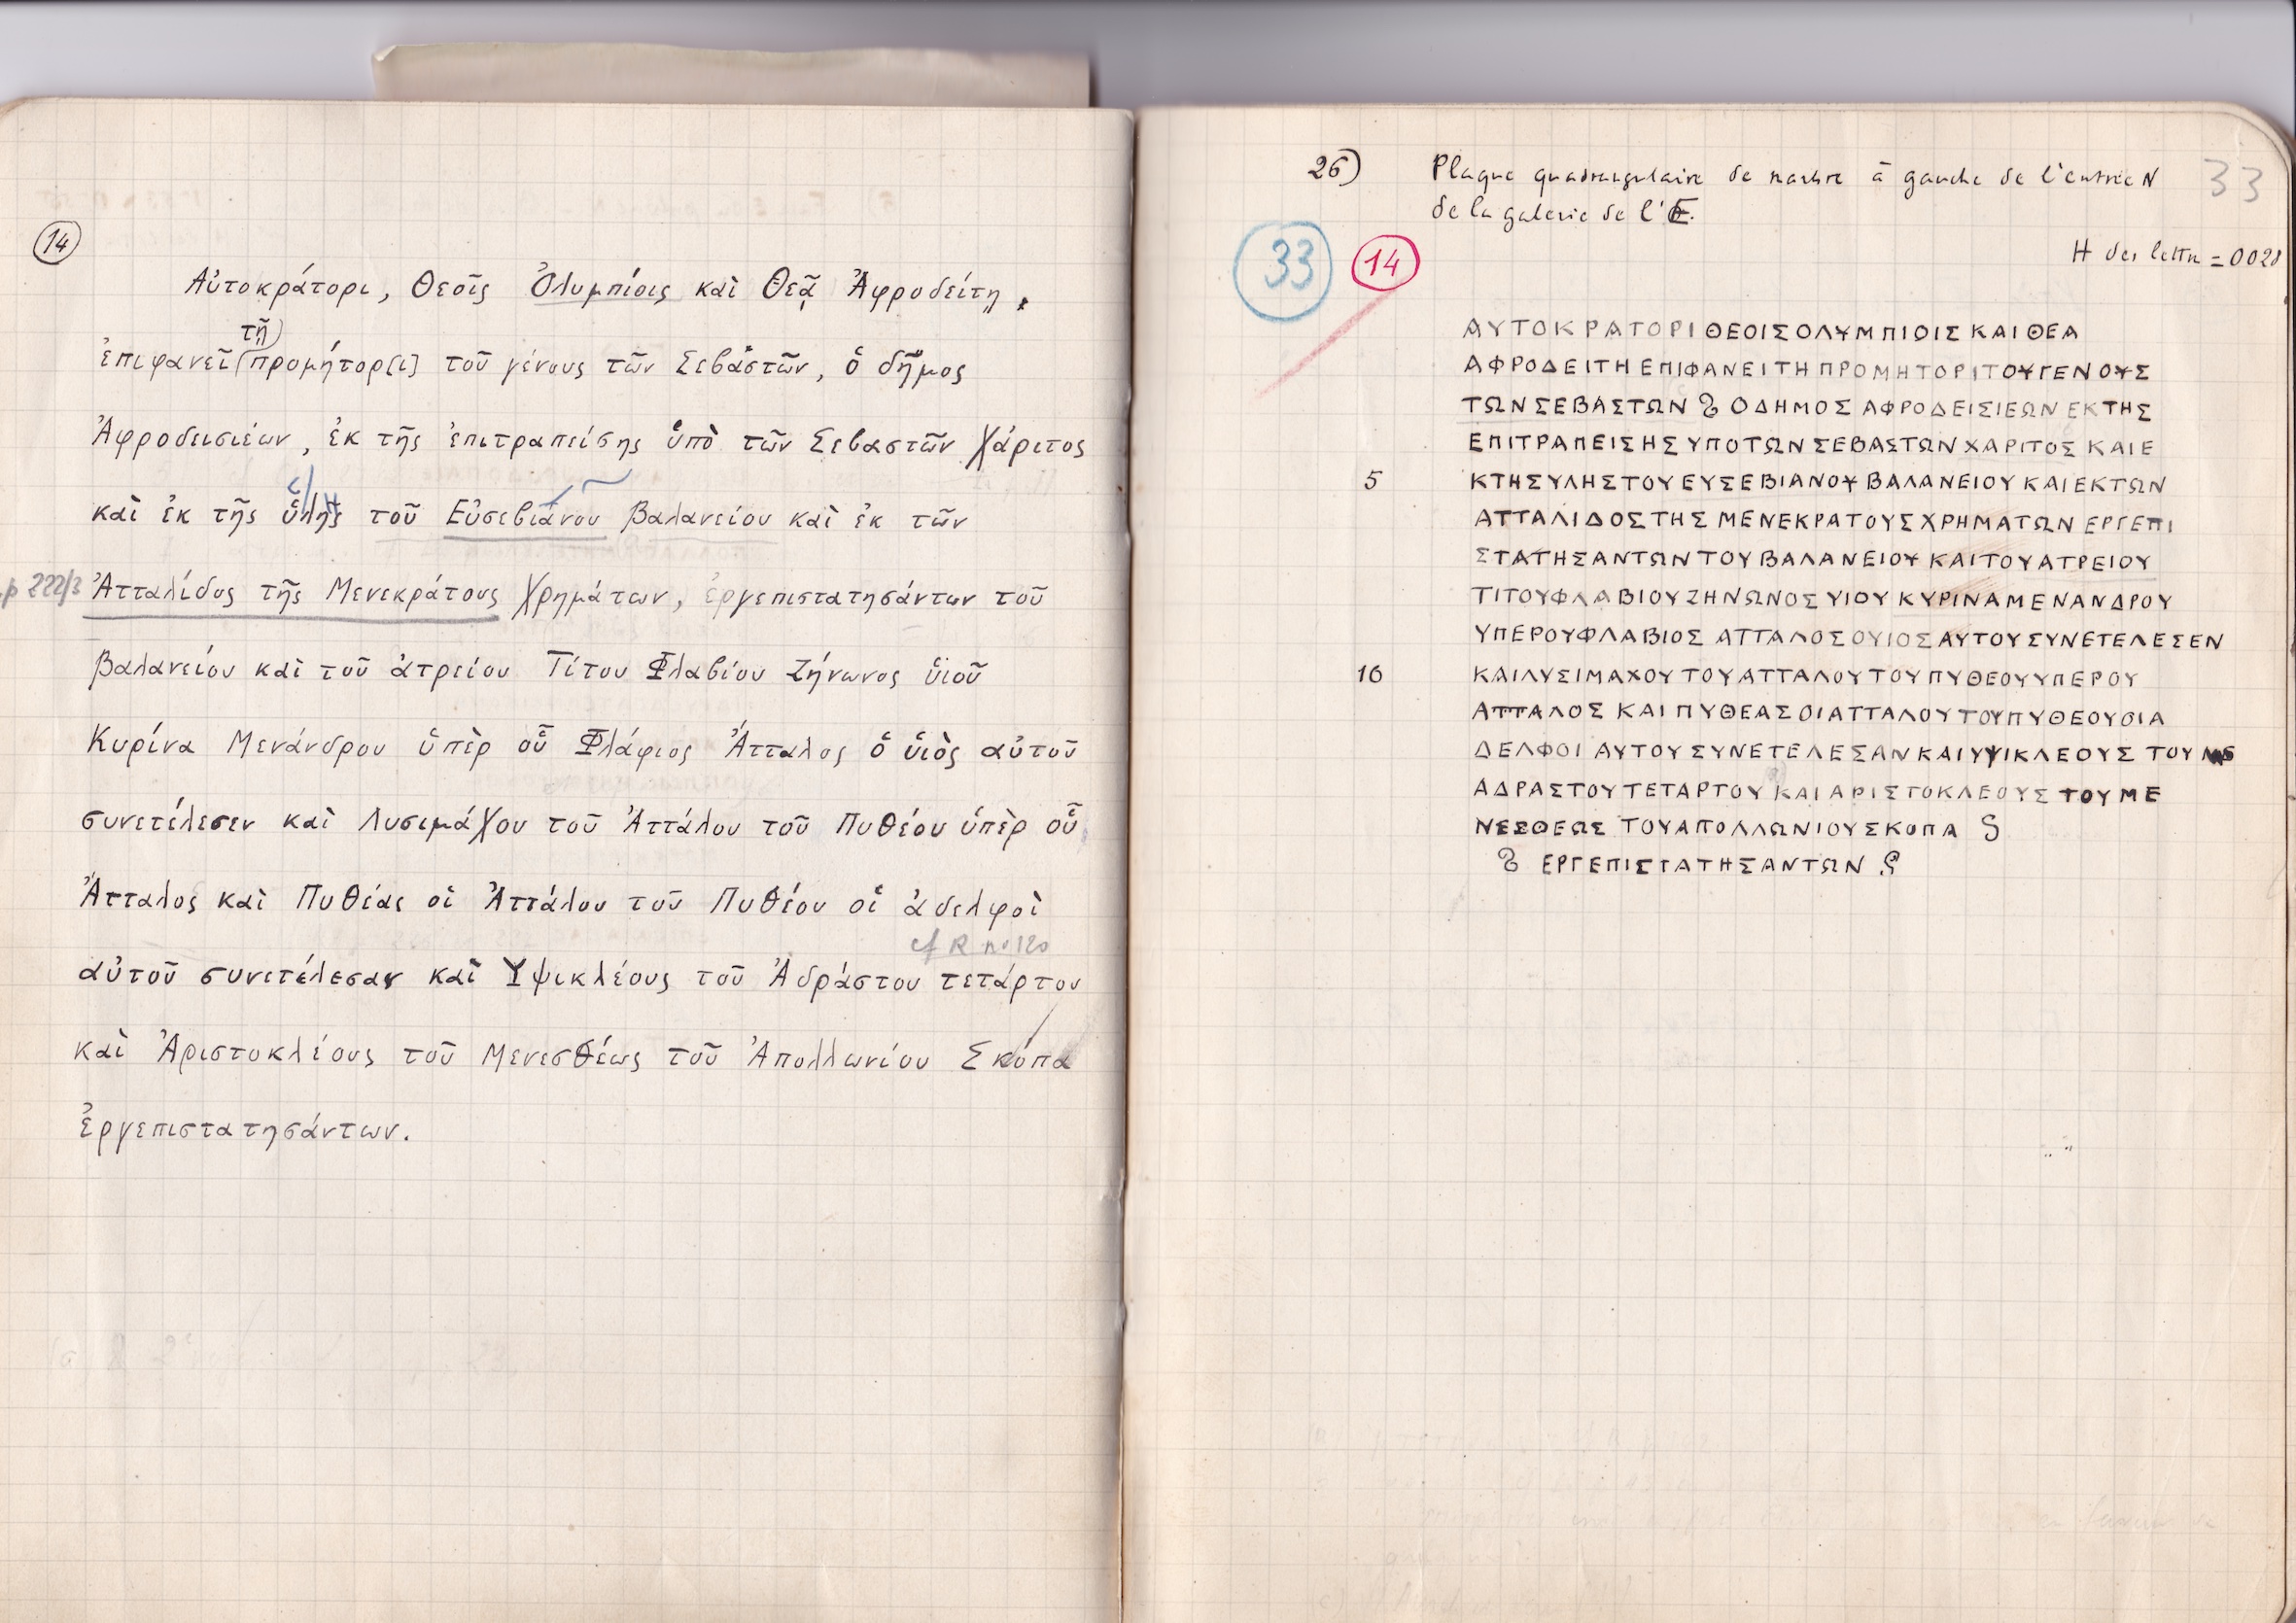 14
Αὐτοκράτορι, Θεοῖς Ὀλυμπίοις καὶ Θεᾷ Ἀφροδείτῃ,
τῇ)
ἐπιφανεῖ (προμήτορ[ι] τοῦ γένους τῶν Σεβαστῶν, ὁ δῆμος
Ἀφροδεισιέων, ἐκ τῆς ἐπιτραπείσης ὑπὸ τῶν Σεβαστῶν χάριτος
καὶ ἐκ τῆς ὕλης τοῦ Εὐσεβιάνου βαλανείου καὶ ἐκ τῶν
p 222/3 Ἀτταλίδος τῆς Μενεκράτους χρημάτων, ἐργεπιστατησάντων τοῦ
βαλανείου καὶ τοῦ ἀτρείου Τίτου Φλαβίου Ζήνωνος ὑιοῦ
Κυρίνα Μενάνδρου ὑπὲρ οὗ Φλάφιος Ἄτταλος ὁ ὑιὸς αὐτοῦ
συνετέλεσεν καὶ Λυσιμάχου τοῦ Ἀττάλου τοῦ Πυθέου ὑπὲρ οὗ
Ἄτταλος καὶ Πυθέας οἱ Ἀττάλου τοῦ Πυθέου οἱ ἀδελφοὶ
cf R no 120
αὐτοῦ συνετέλεσαν καὶ Ὑψικλέους τοῦ Ἀδράστου τετάρτου
καὶ Ἀριστοκλέους τοῦ Μενεσθέως τοῦ Ἀπολλωνίου Σκόπα
ἐργεπιστατησάντων.
26) Plaque quadrangulaire de marbre à gauche de l'entrée N 33
de la galerie de l'E.
33 14
H des lettr = 0028
ΑΥΤΟΚΡΑΤΟΡΙΘΕΟΙΣΟΛΥΜΠΙΟΙΣ ΚΑΙ ΘΕΑ
ΑΦΡΟΔΕΙΤΗ ΕΠΙΦΑΝΕΙ ΤΗ ΠΡΟΜΗΤΟΡΙΤΟΥΓΕΝΟΥΣ
ΤΩΝΣΕΒΑΣΤΩΝ ΟΔΗΜΟΣ ΑΦΡΟΔΕΙΣΙΕΩΝ ΕΚΤΗΣ
ΕΠΙΤΡΑΠΕΙΣΗΣ ΥΠΟΤΩΝΣΕΒΑΣΤΩΝ ΧΑΡΙΤΟΣ ΚΑΙΕ
5 ΚΤΗΣΥΛΗΣΤΟΥΕΥΣΕΒΙΑΝΟΥ ΒΑΛΑΝΕΙΟΥ ΚΑΙΕΚΤΩΝ
ΑΤΤΑΛΙΔΟΣΤΗΣ ΜΕΝΕΚΡΑΤΟΥΣΧΡΗΜΑΤΩΝ ΕΡΓΕΠΙ
ΣΤΑΤΗΣΑΝΤΩΝ ΤΟΥΒΑΛΑΝΕΙΟΥ ΚΑΙΤΟΥΑΤΡΕΙΟΥ
ΤΙΤΟΥΦΛΑΒΙΟΥΖΗΝΩΝΟΣ ΥΙΟΥ ΚΥΡΙΝΑΜΕΝΑΝΔΡΟΥ
ΥΠΕΡΟΥΦΛΑΒΙΟΣ ΑΤΤΑΛΟΣΟΥΙΟΣΑΥΤΟΥΣΥΝΕΤΕΛΕΣΕΝ
10 ΚΑΙΛΥΣΙΜΑΧΟΥΤΟΥΑΤΤΑΛΟΥΤΟΥΠΥΘΕΟΥΥΠΕΡΟΥ
ΑΤΤΑΛΟΣ ΚΑΙ ΠΥΘΕΑΣ ΟΙΑΤΤΑΛΟΥΤΟΥΠΥΘΕΟΥΟΙΑ
ΔΕΛΦΟΙ ΑΥΤΟΥΣΥΝΕΤΕΛΕΣΑΝ ΚΑΙΥΨΙΚΛΕΟΥΣ ΤΟΥ
ΑΔΡΑΣΤΟΥΤΕΤΑΡΤΟΥ ΚΑΙΑΡΙΣΤΟΚΛΕΟΥΣ ΤΟΥΜΕ
ΝΕΣΘΕΩΣ ΤΟΥΑΠΟΛΛΩΝΙΟΥΣΚΟΠΑ
ΕΡΓΕΠΙΣΤΑΤΗΣΑΝΤΩΝ